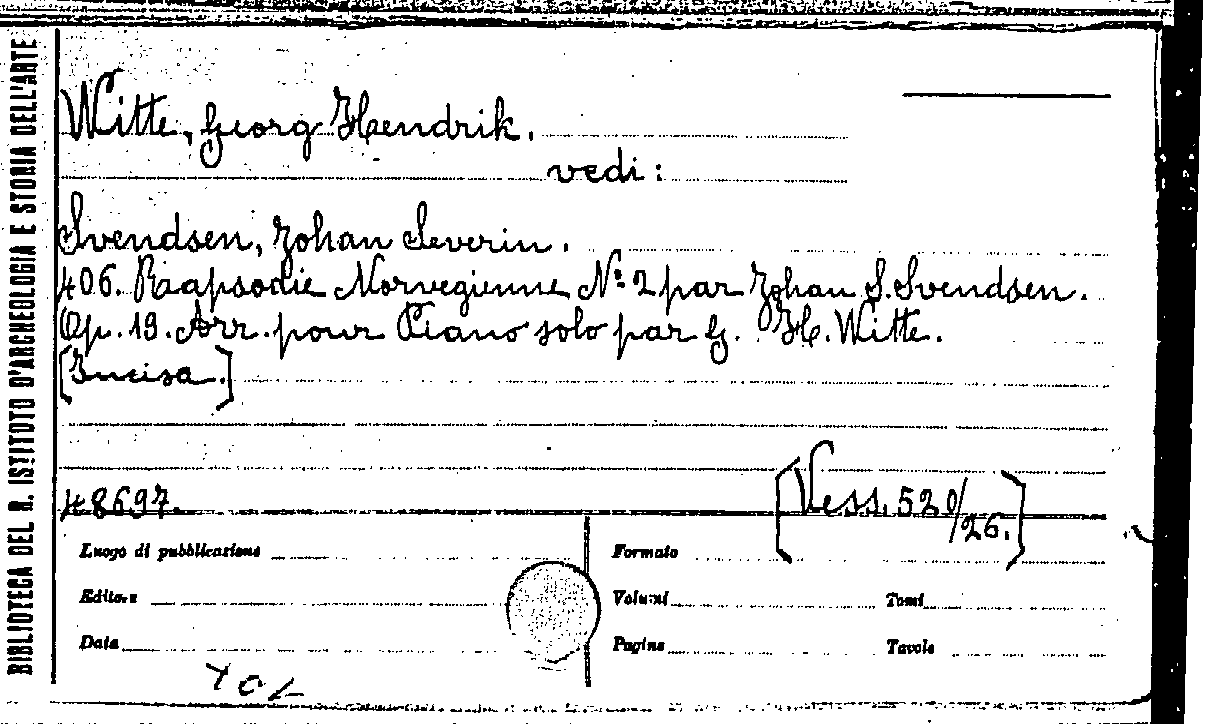 BIBLIOTECA DEL R. ISTITUTO D'ARCHEOLOGIA E STORIA DELL'ARTE
Witte, Georg Hendrik.
vedi:
Svendsen, Johan Severin.
406. Rapsodie Norvegienne Nº 2 par Johan S. Svendsen.
Op. 19. Arr. pour Piano solo par G. H. Witte.
[Incisa.]
48697.
[Vess. 520/26.]
Luogo di pubblicazione
Formato
Editore
Volumi
Tomi
Data
Pagine
Tavole